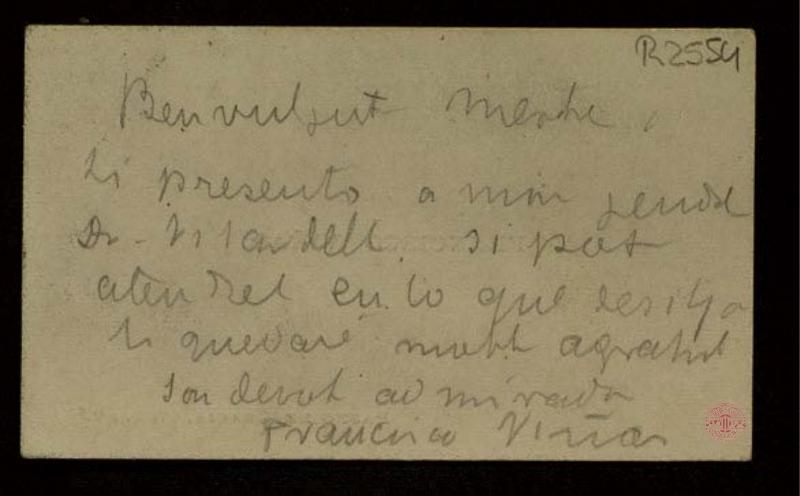 R2554
Benvulgut Mestre,
Li presento a mon gendre
Dr. Vilardell. Si pot
atendrel en lo que desitja
li quedaré molt agrahit
Son devot admirador
Francisco Viñas